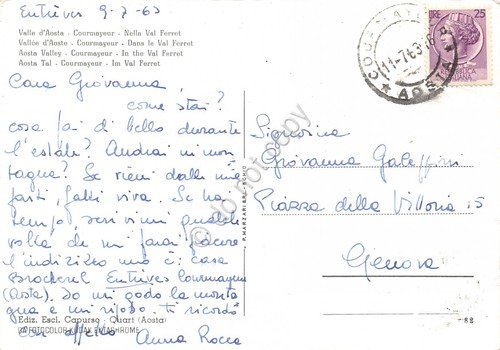 Entrèves 9-7-63
Valle d'Aosta - Courmayeur - Nella Val Ferret
Vallée d'Aoste - Courmayeur - Dans le Val Ferret
Aosta Valley - Courmayeur - In the Val Ferret
Aosta Tal - Courmayeur - Im Val Ferret
Cara Giovanna,
come stai?
cosa fai di bello durante
l'estate? Andrai in mon
tagna? Se vieni dalle mie
parti, fatti viva. Se hai
tempo scrivimi qualche
volta che mi farai piacere
l'indirizzo mio è: casa
Brocherel Entrèves Courmayeur
(Aosta). Io mi godo la monta
gna e mi riposo. ti ricordo
con affetto Anna Rocca
Ediz. Escl. Capurso - Quart (Aosta)
DA FOTOCOLOR KODAK EKTACHROME
P. MARZARI
COURMAYEUR
11-7-63
AOSTA
LIRE 25
Signorina
Giovanna Galeffini
Piazza della Vittoria 15
Genova
82
do not copy